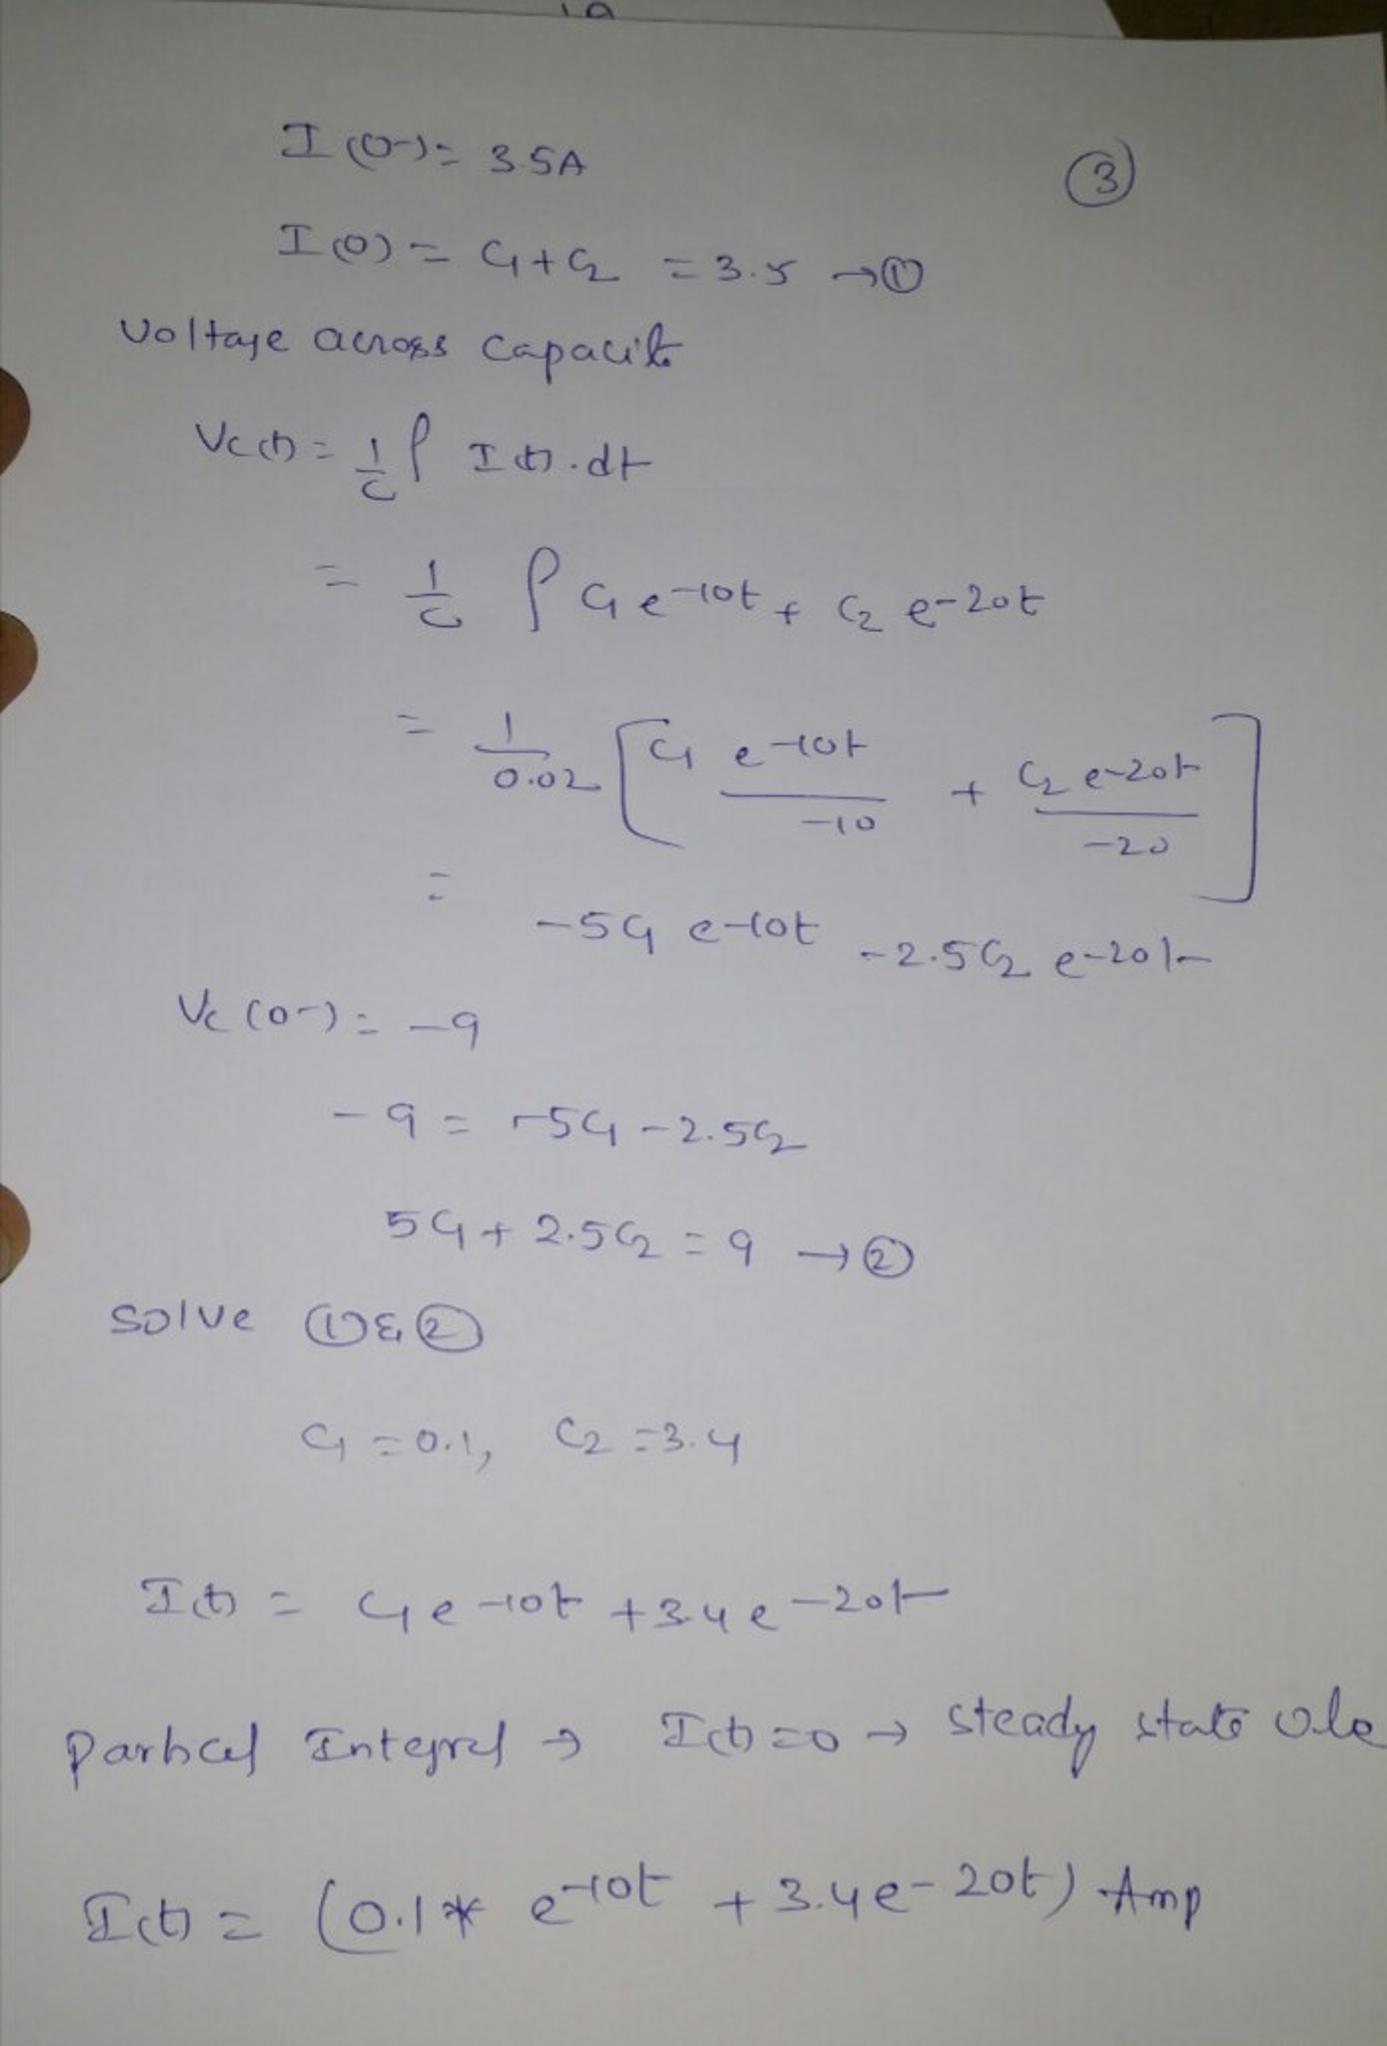 I(0-) = 3.5A
3
I(0) = C1 + C2 = 3.5 → ①
Voltage across capacito
Vc(t) = 1/C ∫ I(t).dt
= 1/C ∫ C1 e-10t + C2 e-20t
= 1/0.02 [C1 e-10t/-10 + C2 e-20t/-20]
= -5C1 e-10t - 2.5C2 e-20t
Vc(0-) = -9
-9 = -5C1 - 2.5C2
5C1 + 2.5C2 = 9 → ②
Solve ① & ②
C1 = 0.1, C2 = 3.4
I(t) = C1 e-10t + 3.4e-20t
Partical Integrel → I(t) = 0 → steady state
I(t) = (0.1* e-10t + 3.4e-20t) Amp